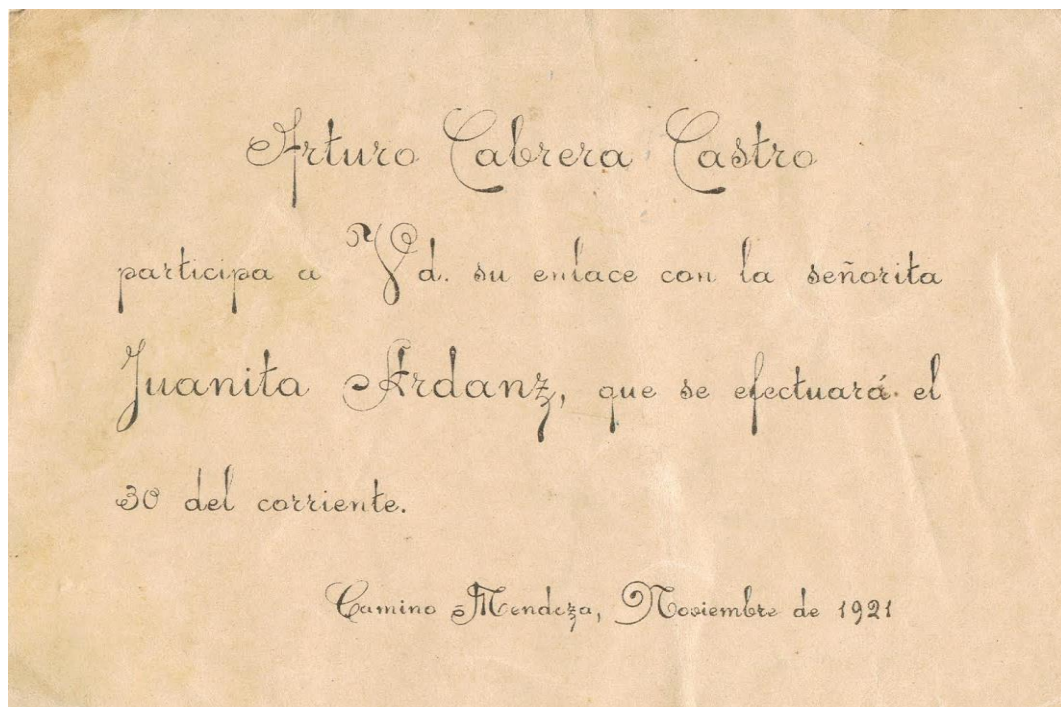 Arturo Cabrera Castro
participa a Vd. su enlace con la señorita
Juanita Ardanz, que se efectuará el
30 del corriente.
Camino Mendoza, Noviembre de 1921